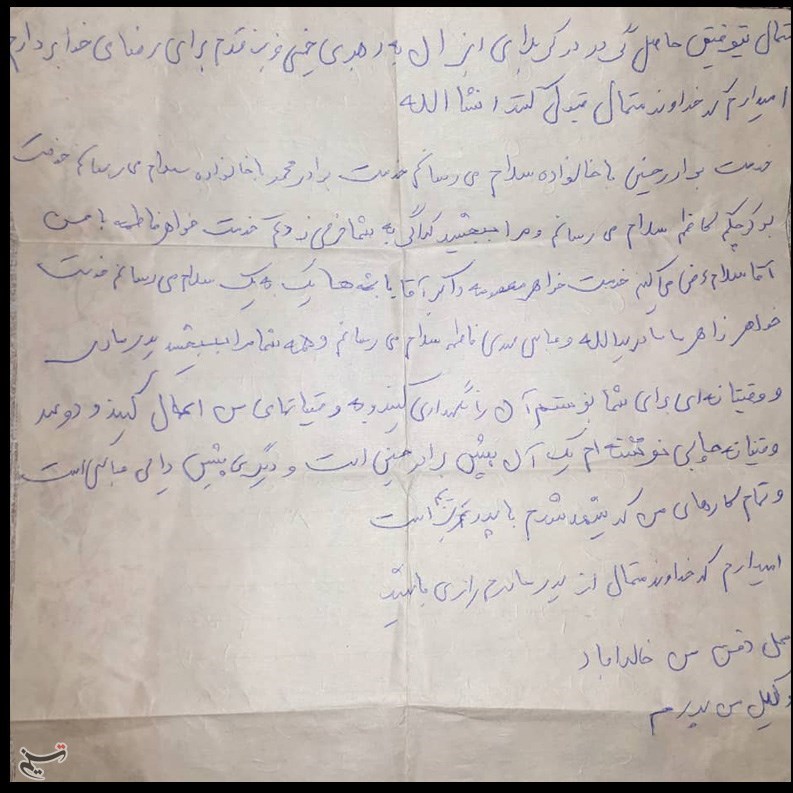 متمال توفیق حاصل گردد در کربلای ایران به رهبری خمینی قدم برای رضای خدا بردارم
امیدارم که خداوند متمال قبول کند انشا الله
خدمت برادر حسینی با خانواده سلام می رسانم خدمت برادر محمد با خانواده سلام می رسانم خدمت
کاظم سلام می رسانم و مرا ببخشید به شما خدمت خواهر فاطمه با حسن
آقا سلام عرض می کنم خدمت خواهر معصومه و اکبر آقا با بچه ها یک به یک سلام می رسانم خدمت
خواهر زاهرا با یدالله و عباس مهدی فاطمه سلام می رسانم و همه شما مرا ببخشید پدر مادر
و وقیتانه ای برای شما نوشتم آن را نگهداری کنید و به وقیتانهای من اعمال کنید و دو عدد
وقیتانه چاپی نوشته ام یک آن پیش برادر حسینی است و دیگری پیش عباسی است
و تمام کارهای من که شهید شدم با پدر است
امیدارم که خداوند متمال از پدر مادرم رازی باشید
محل دفن من خالداباد
وکیل من پدرم
تسنیم